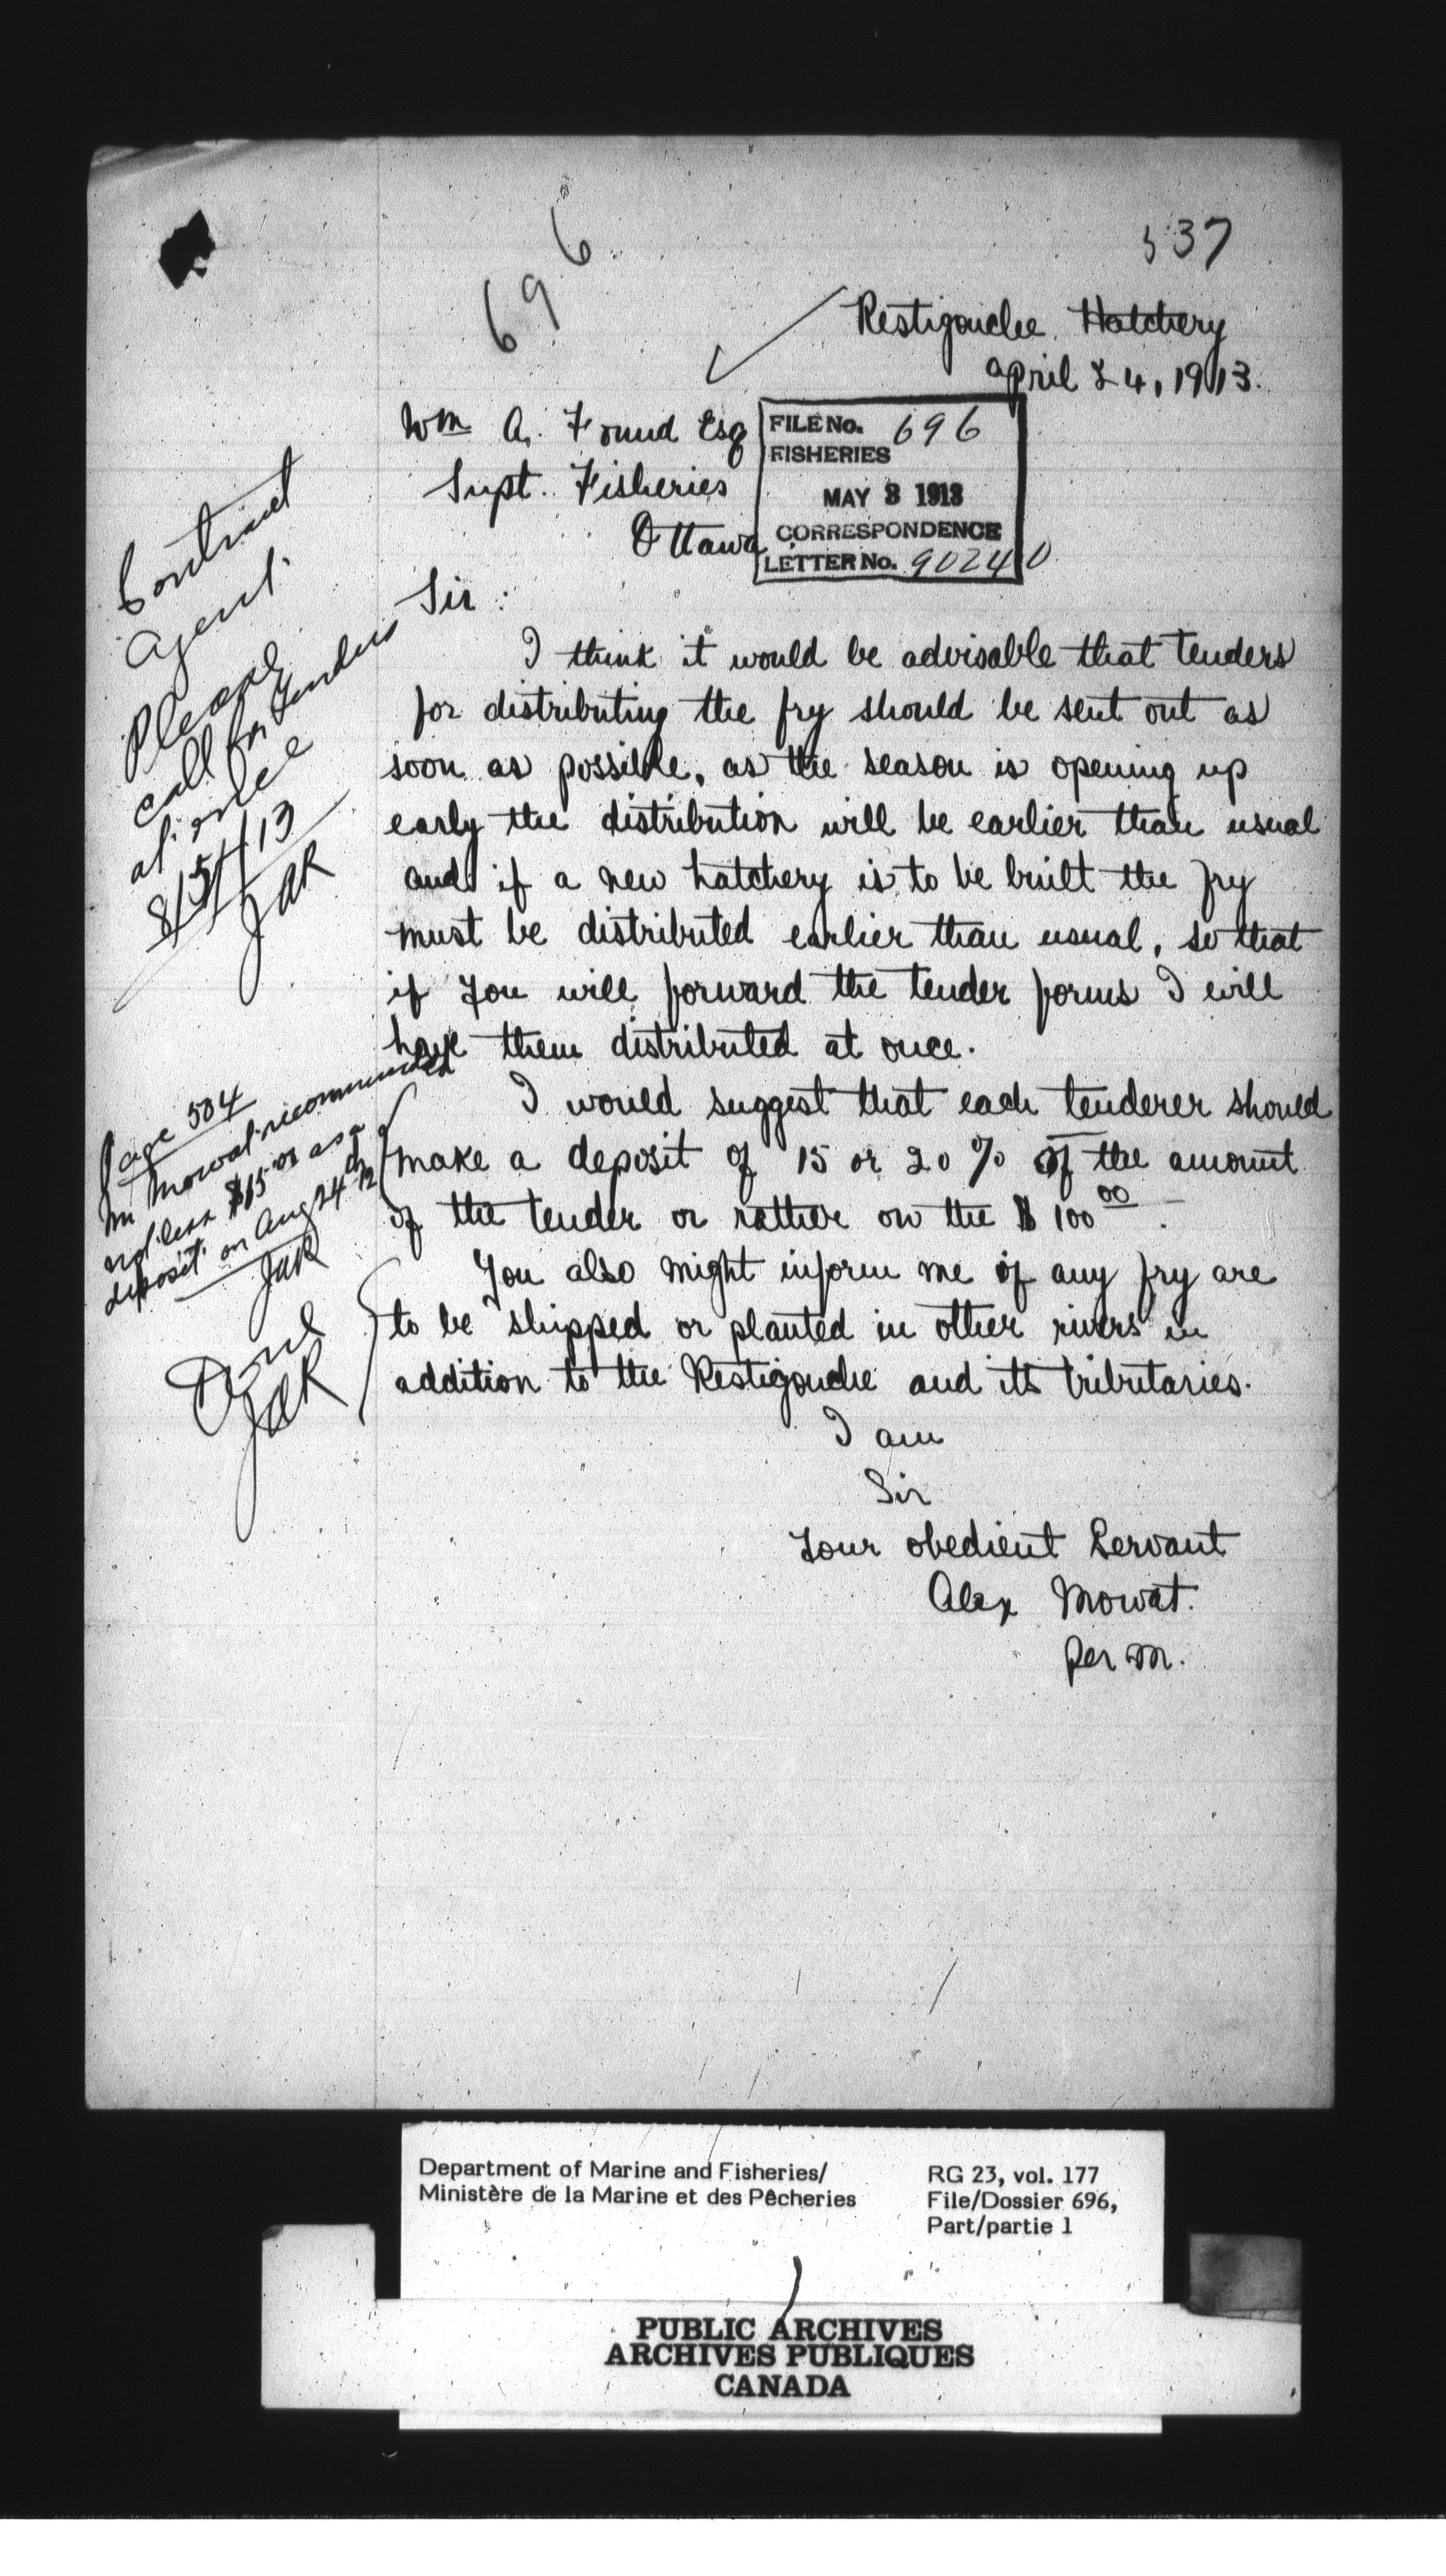 696
537
Restigouche Hatchery
April 24, 1913.
Wm A. Found Esq
Supt. Fisheries
Ottawa
FILE No. 696
FISHERIES
MAY 3 1913
CORRESPONDENCE
LETTER No. 90240
Sir:
I think it would be advisable that tenders
for distributing the fry should be sent out as
soon as possible, as the season is opening up
early the distribution will be earlier than usual
and if a new hatchery is to be built the fry
must be distributed earlier than usual, so that
if you will forward the tender forms I will
have them distributed at once.
I would suggest that each tenderer should
make a deposit of 15 or 20 % of the amount
of the tender or rather on the $ 100 00.
You also might inform me if any fry are
to be shipped or planted in other rivers in
addition to the Restigouche and its tributaries.
I am
Sir
Your obedient Servant
Alex Mowat.
Per M.
Contract
Agent.
Please
call for Tenders
at once
8/5/13
JAR
Page 504
Mr Mowat recommended
not less $15 as a
deposit on Aug 24th 12
JAR
Done
JAR
Department of Marine and Fisheries/
Ministère de la Marine et des Pêcheries
RG 23, vol. 177
File/Dossier 696,
Part/partie 1
PUBLIC ARCHIVES
ARCHIVES PUBLIQUES
CANADA